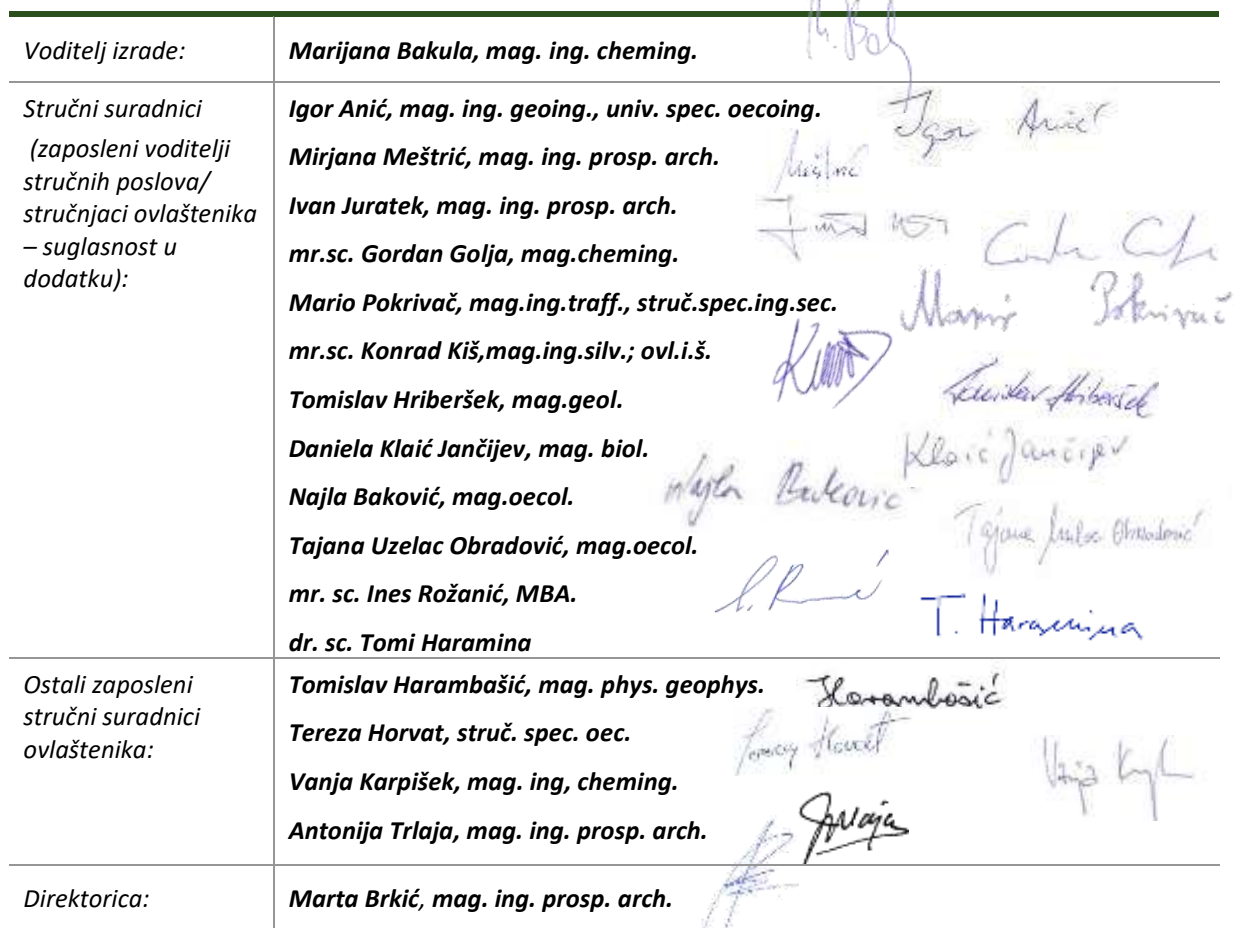 Voditelj izrade:
Marijana Bakula, mag. ing. cheming.
Stručni suradnici
(zaposleni voditelji
stručnih poslova/
stručnjaci ovlaštenika
– suglasnost u
dodatku):
Igor Anić, mag. ing. geoing., univ. spec. oecoing.
Igor Anić
Mirjana Meštrić, mag. ing. prosp. arch.
Meštrić
Ivan Juratek, mag. ing. prosp. arch.
mr.sc. Gordan Golja, mag.cheming.
Mario Pokrivač, mag.ing.traff., struč.spec.ing.sec.
Mario Pokrivač
mr.sc. Konrad Kiš,mag.ing.silv.; ovl.i.š.
Tomislav Hriberšek, mag.geol.
Tomislav Hriberšek
Daniela Klaić Jančijev, mag. biol.
Klaić Jančijev
Najla Baković, mag.oecol.
Najla Baković
Tajana Uzelac Obradović, mag.oecol.
Tajana Uzelac Obradović
mr. sc. Ines Rožanić, MBA.
dr. sc. Tomi Haramina
T. Haramina
Ostali zaposleni
stručni suradnici
ovlaštenika:
Tomislav Harambašić, mag. phys. geophys.
Harambašić
Tereza Horvat, struč. spec. oec.
Vanja Karpišek, mag. ing, cheming.
Antonija Trlaja, mag. ing. prosp. arch.
Direktorica:
Marta Brkić, mag. ing. prosp. arch.